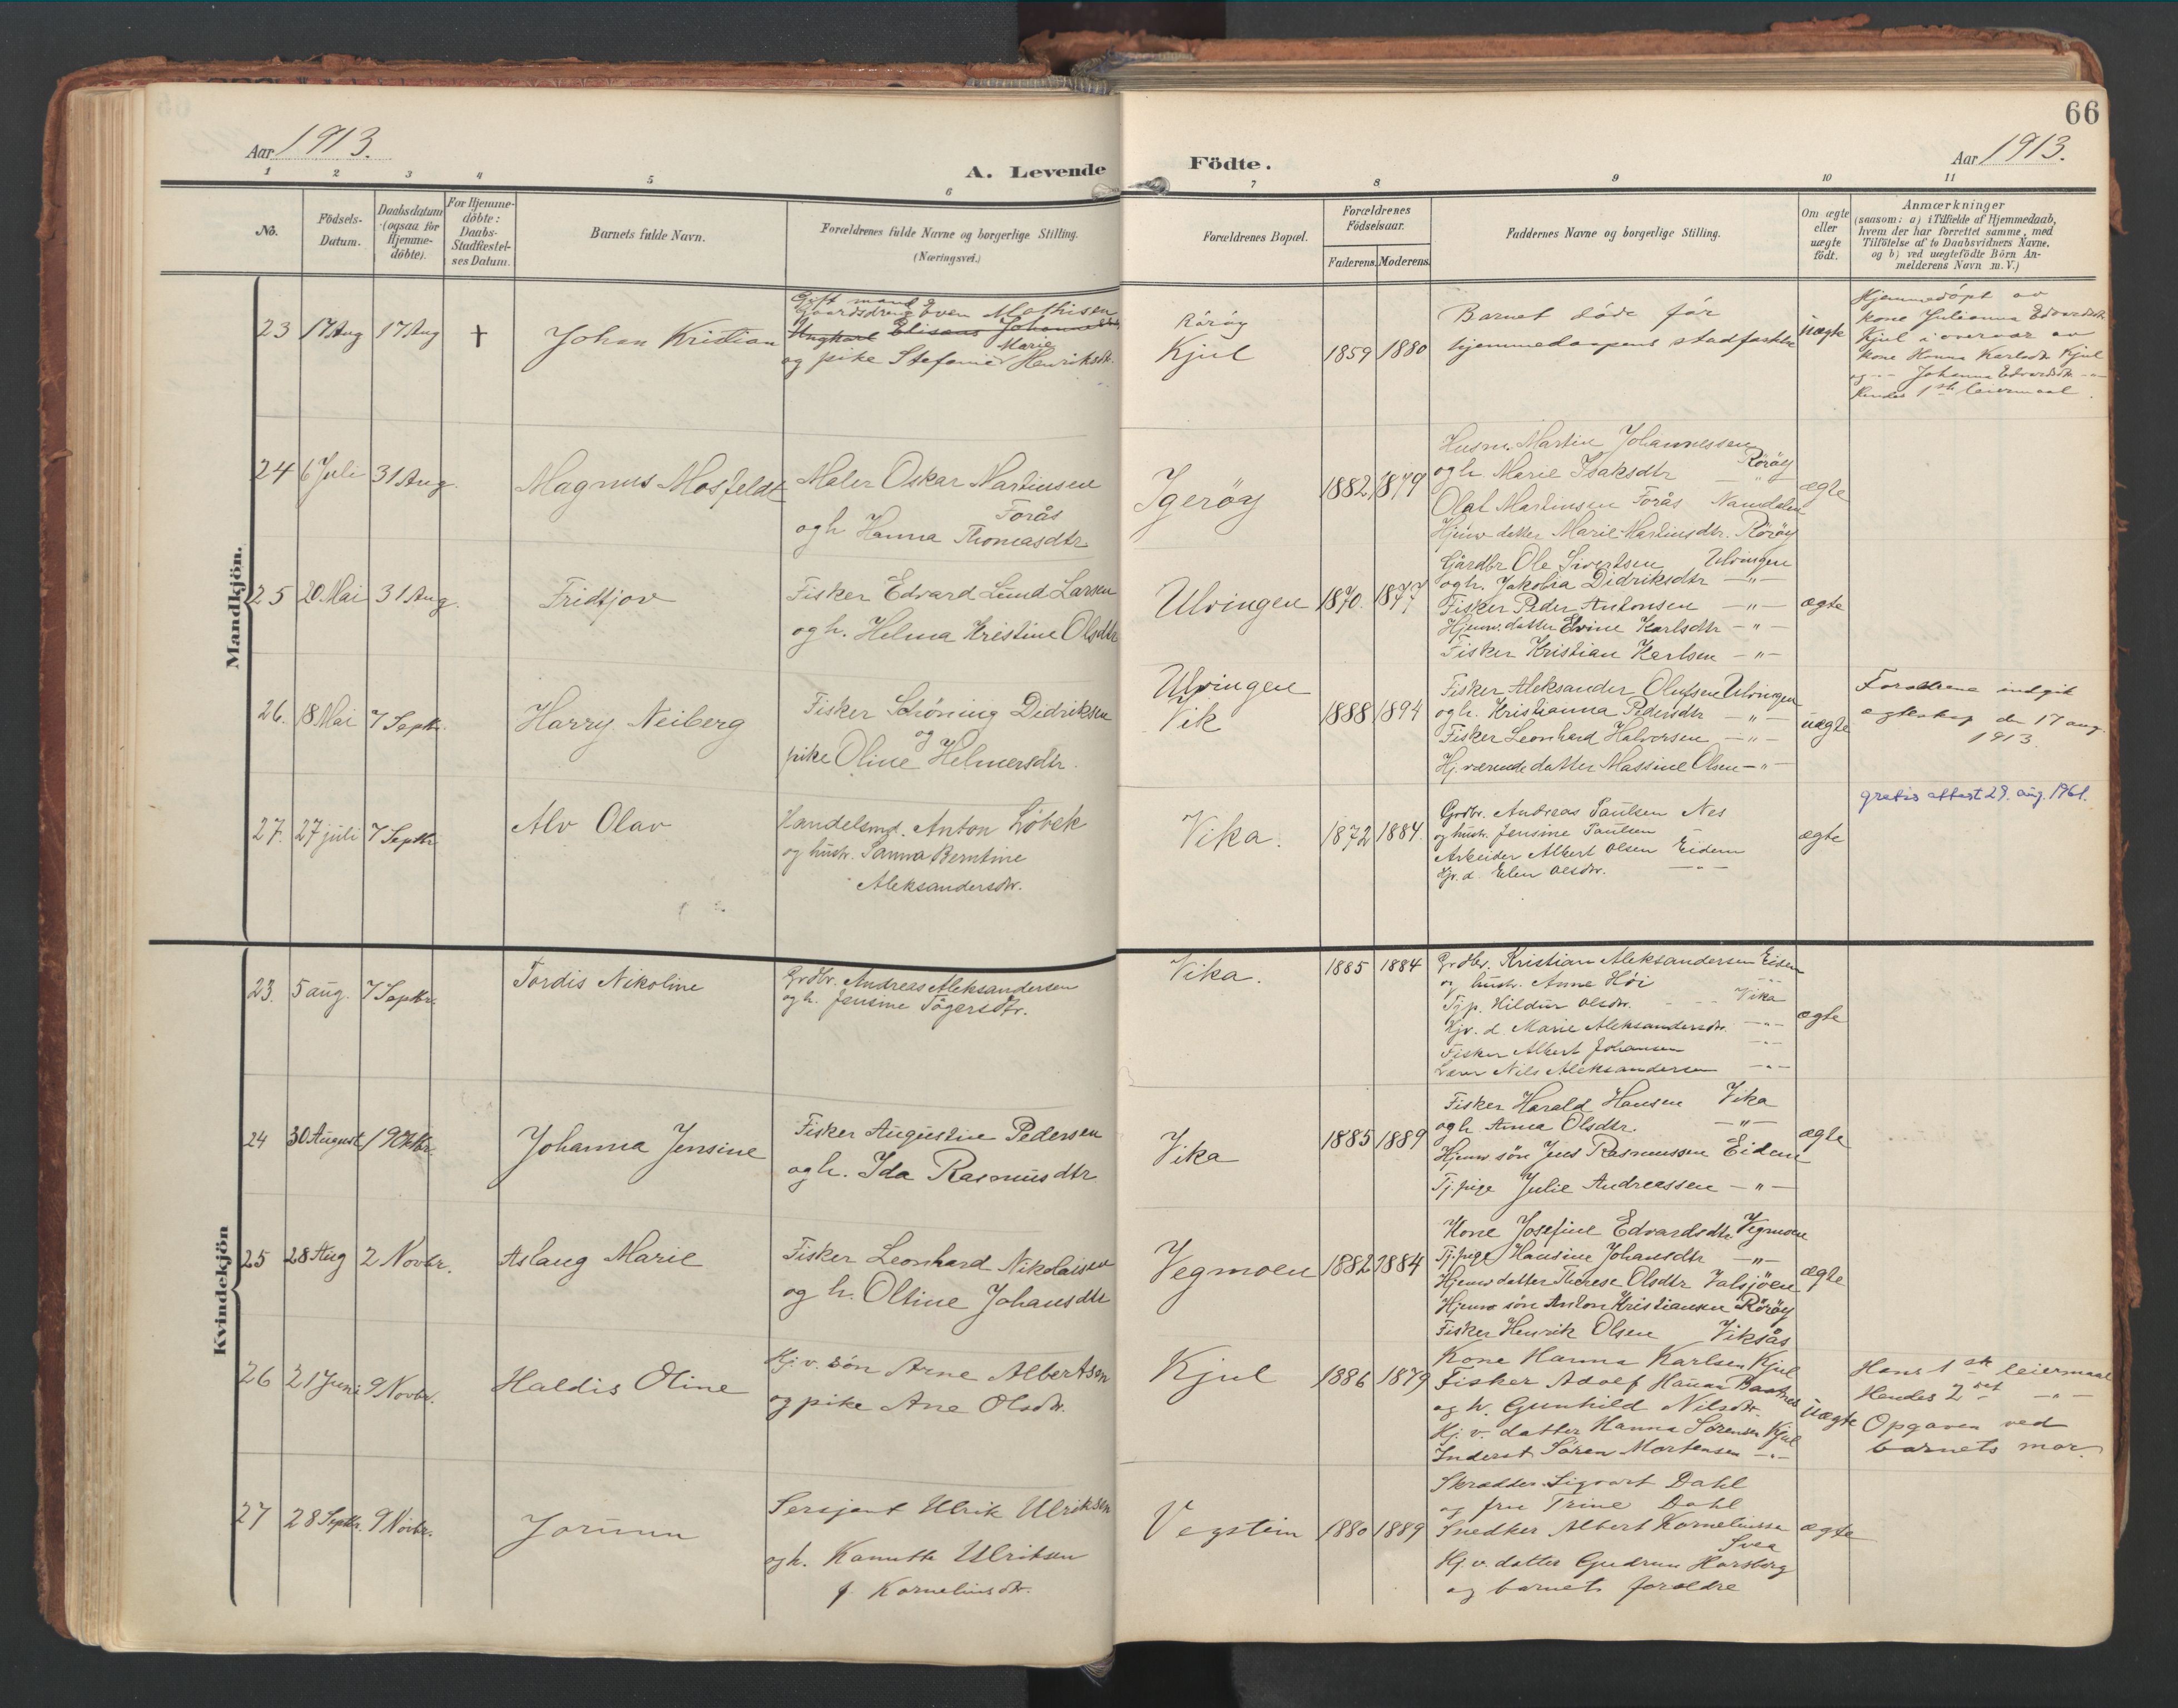 66
Aar 1913.
A. Levende Födte.
Aar 1913.
1 2 3 4 5 6 7 8 9 10 11
No.
Födsels-
Datum.
Daabsdatum
(ogsaa for
Hjemme-
döbte).
For Hjemme-
döbte:
Daabs-
Stadfæstel-
ses Datum.
Barnets fulde Navn.
Forældrenes fulde Navne og borgerlige Stilling.
(Næringsvei.)
Forældrenes Bopæl.
Forældrenes
Födselsaar.
Faderens. Moderens.
Faddernes Navne og borgerlige Stilling.
Om ægte
eller
uægte
födt.
Anmærkninger
(saasom: a) i Tilfælde af Hjemmedaab,
hvem der har forrettet samme, med
Tilföielse af to Daabsvidners Navne,
og b) ved uægtefödte Börn An-
melderens Navn m. V.)
Mandkjön.
23 17 Aug 17 Aug † Johan Kristian
Gift mand
Gaardsdreng Even Mathisen
Ungkarl Elisæus
og pike Stefanie Marie Henriksdtr.
Rörøy
Kjul
1859 1880
Barnet döde før
hjemmedaapens stadfæstelse
uægte
Hjemmedöpt av
kone Julianna Edvardsdtr
Kjul i overvær av
kone Hanna Karlsdtr Kjul
og -"- Johanna Edvardsdtr -"-
Hendes 1ste leiermaal.
24 6 Juli 31 Aug. Magnus Mosfeldt
Maler Oskar Martinsen
Forås
og h Hanna Thomasdtr
Igerøy
1882 1879
Husm. Martin Johannessen
Rörøy
og h. Marie Isaksdtr -"-
Olaf Martinsen Forås Namdalen
Hjemv datter Marie Martinsdtr. Rörøy
ægte
25 20 Mai 31 Aug. Fridtjov
Fisker Edvard Lund Larsen
og h. Helma Kristine Olsdtr
Ulvingen
1870. 1877
Gårdbr Ole Sivertsen Ulvingen
og h. Jakobia Didriksdtr -"-
Fisker Peder Antonsen -"-
Hjemv. datter Elvine Karlsdtr -"-
Fisker Kristian Karlsen -"-
ægte
26. 18 Mai 7 Septbr. Harry Neiberg
Fisker Schöning Didriksen
og
pike Oline Helmersdtr.
Ulvingen
Vik
1888 1894
Fisker Aleksander Olufsen Ulvingen
og h. Kristianna Pedersdtr -"-
Fisker Leonhard Halvorsen -"-
Hj. værende datter Massine Olsen -"-
uægte
Forældrene indgik
egteskap den 17 aug.
1913.
27. 27 juli 7 Septbr. Alv Olav
Handelsmd. Anton Löbek
og hustr. Sanna Berntine
Aleksandersdtr.
Vika.
1872 1884.
Grdbr. Andreas Paulsen Nes
og hustr. Jensine Paulsen
Arbeider Albert Olsen Eidem
Hjv. d. Elen Olsdtr. -"-
ægte
gratis attest 29. aug. 1961.
Kvindekjön
23. 5 aug. 7 Septbr. Tordis Nikoline
Grdbr. Andreas Aleksandersen
og h. Jensine Tögersdtr.
Vika.
1885 1884
Grdbr. Kristian Aleksandersen Eidem
og hustr. Anne Höi -"-
Tjp. Hildur Olsdtr. Vika
Hjv. d. Marie Aleksandersdtr. -"-
Fisker Albert Johansen -"-
Lærer Nils Aleksandersen -"-
ægte
24 30 August 19 Oktbr. Johanna Jensine
Fisker Augustin Pedersen
og h. Ida Rasmusdtr
Vika
1885 1889
Fisker Harald Hansen Vika
og h Anna Olsdtr. -"-
Hjemv sön Jens Rasmussen Eidem
Tj. pige Julie Andreassen -"-
ægte
25 28 Aug 2 Novbr. Aslaug Marie
Fisker Leonhard Nikolaisen
og h. Oltine Johansdtr
Vegmoen
1882 1884
Kone Josefine Edvardsdtr. Vegmoen
Tj. pige Hansine Johansdtr -"-
Hjemv datter Therese Olsdtr Valsjöen
Hjemv sön Anton Kristiansen Rörøy
Fisker Henrik Olsen Viksås
ægte
26 21 Juni 9 Novbr. Haldis Oline
Hj. v. sön Arne Albertsen
og pike Ane Olsdtr.
Kjul
1886 1879
Kone Hanna Karlsen Kjul
Fisker Adolf Hansen
og h. Gunhild Nilsdtr
Hj. v. datter Hanna Sörensen Kjul
Inderst Sören Mortensen -"-
uægte
Hans 1ste leiermaal
Hendes 2det -"-
Opgaven ved
barnets mor.
27 28 Septbr. 9 Novbr. Jorunn
Sersjant Ulrik Ulriksen
og h. Kanutte Ulriksen
f. Korneliusdtr.
Vegstein
1880 1889
Skrædder Sigvart Dahl
og fru Trine Dahl
Snedker Albert Korneliussen
Svea
Hj. v. datter Gudrun Horsberg
og barnets forældre
ægte